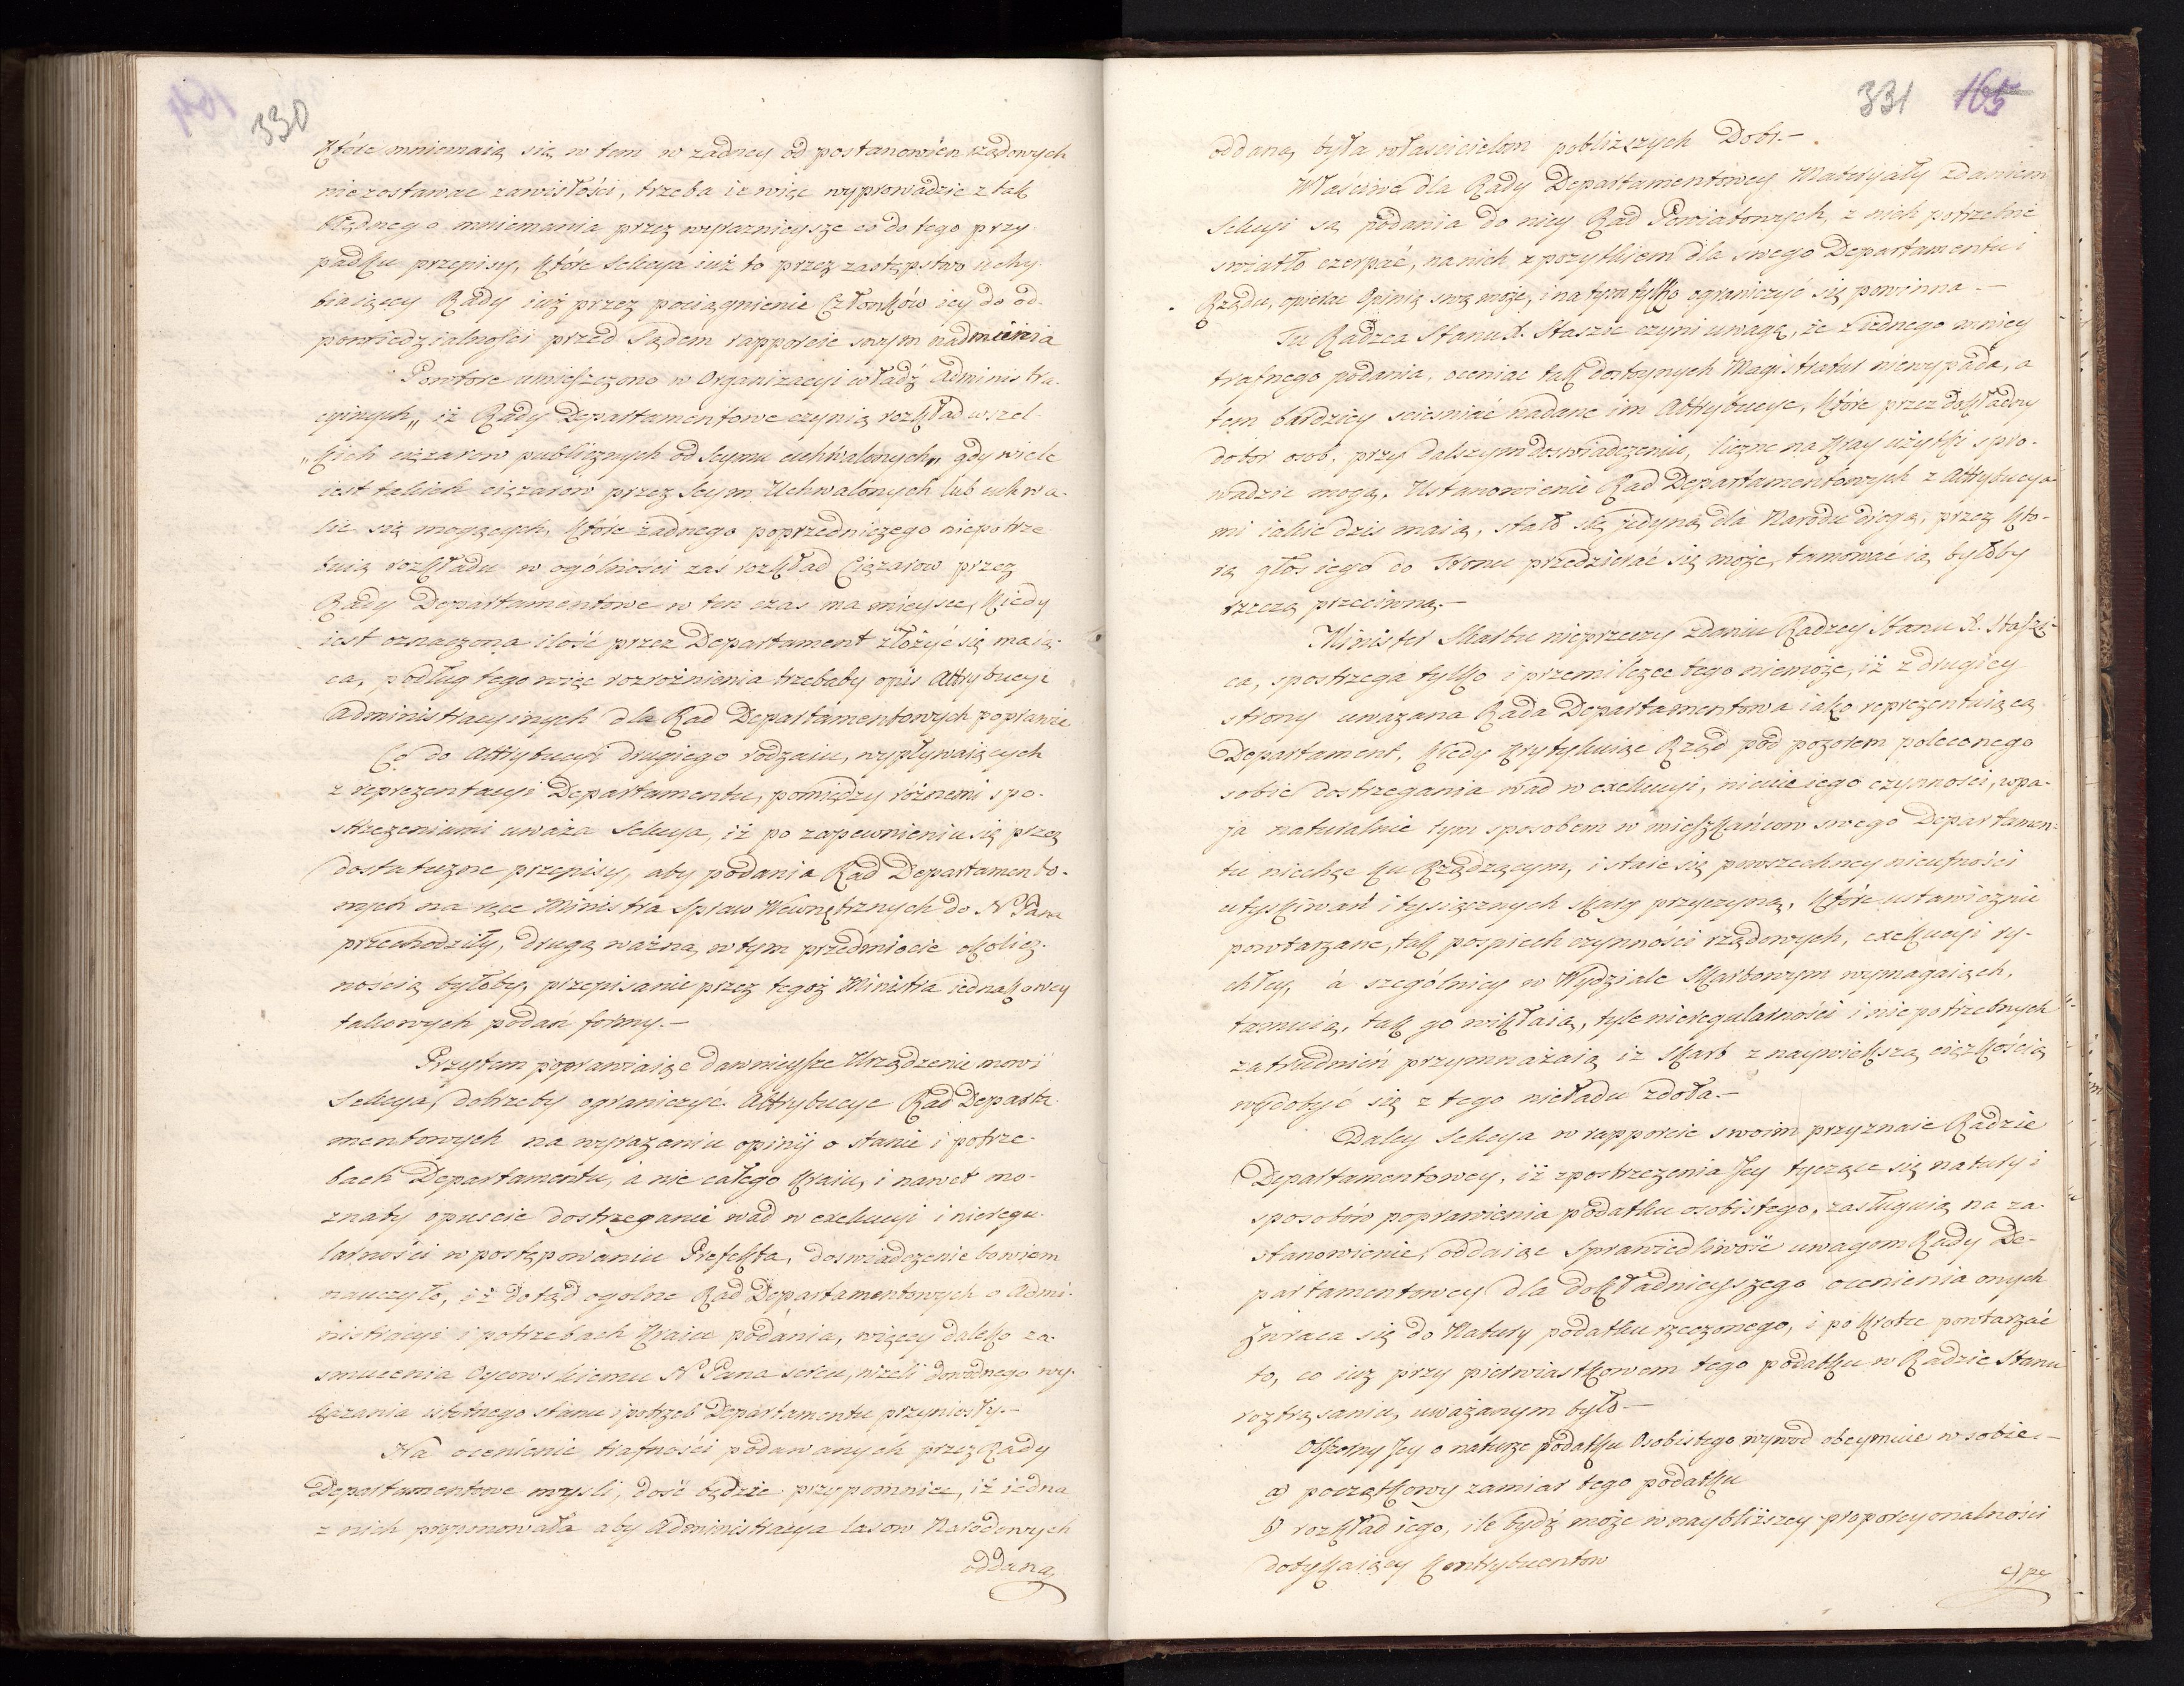 330
Które mniemaią się w tem w żadney od postanowień rządowych
niezostawac zawisłości, trzeba ie więc wyprowadzic z tak
błędnego mniemania przez wyraznieysze co do tego przy-
padku przepisy, które Sekcya iuż to przez zastępstwo uchy-
biaiącey Rady iuż przez pociągnienie Członków iey do od-
powiedzialności przed Sądem rapporcie swym nadmienia
Powtore umieszczono w Organizacyi władz Administra-
cyinych„ iż Rady Departamentowe czynią rozkład wszel-
„kich ciężarow publicznych od Seymu uchwalonych„ gdy wiele
iest takich ciężarow przez Seym Uchwalonych lub uchwa-
lic się mogących, które żadnego poprzedniczego niepotrze
buią rozkładu w ogólności zaś rozkład Ciężarow przez
Rady Departamentowe w ten czas ma mieysce, kiedy
iest oznaczona ilość przez Departament złożyć się maią-
ca, podług tego więc rozrożnienia trzebaby opis Attrybucyi
Administracyinych dla Rad Departamentowych poprawic
Co do Attrybucyi drugiego rodzaiu, wypływaiących
z reprezentacyi Departamentu, pomiędzy różnemi spo-
strzeżeniami uważa Sekcya, iż po zapewnieniu się przez
dostateczne przepisy, aby podania Rad Departamento-
wych na ręce Ministra Spraw Wewnętrznych do N Pana
przechodziły, drugą ważną w tym przedmiocie okolicz-
nością byłoby, przepisanie przez tegoż Ministra iednakowey
takowych podań formy.–
Przytem poprawiaiąc dawnieysze Urządzenie mowi
Sekcya, dobrzeby ograniczyć Attrybucye Rad Departa-
mentowych na wyrażaniu opinij o stanie i potrze-
bach Departamentu, a nie całego Kraiu, i nawet mo-
żnaby opuscic dostrzeganie wad w exekucyi i nieregu-
larności w postępowaniu Prefekta, doswiadczenie bowiem
nauczyło, iż dotąd ogolne Rad Departamentowych o Admi-
nistracyi i potrzebach Kraiu podania, więcey daleko za-
smucenia Oycowskiemu N Pana sercu, niżeli dowodnego wy-
kazania istotnego stanu i potrzeb Departamentu przyniosły.–
Na ocenienie trafności podawanych przez Rady
Departamentowe mysli, dość będzie przypomniec, iż iedna
z nich proponowała aby Administracya lasow Narodowych
oddana
331 165
oddaną była włascicielom pobliższych Dobr.–
Właściwe dla Rady Departamentowey Materyały zdaniem
Sekcyi są podania do niey Rad Powiatowych, z nich potrzebne
swiatło czerpać, na nich z pozytkiem dla swego Departamentu i
Rządu, opierac Opinią swą może, i na tym tylko ograniczyć się powinna.–
Tu Radzca Stanu X. Staszic czyni uwagę, że z iednego mniey
trafnego podania, oceniac tak dostoynych Magistratur niewypada, a
tem bardziey scieśniać nadane im Attrybucye, które przez dokładny
dobor osob, przy dalszym doswiadczeniu, liczne na Kray użytki spro-
wadzic mogą. Ustanowienie Rad Departamentowych z Attrybucya-
mi iakie dzis maią, stało się jedyną dla Narodu drogą, przez kto-
rą głos iego do Tronu przedzierać się może, tamować ią byłoby
rzeczą przeciwną.–
Minister Skarbu nieprzeczy zdaniu Radzcy Stanu X. Staszi-
ca, spostrzega tylko i przemilczec tego niemoże, iż z drugiey
strony uważana Rada Departamentowa iako reprezentuiąca
Departament, kiedy krytykuiąc Rząd pod pozorem poleconego
sobie dostrzegania wad w exekucyi, nicuie iego czynności, wpa-
ja naturalnie tym sposobem w mieszkańcow swego Departamen-
tu niechęc ku Rządzącym, i staie się powszechney nieufności
utyskiwań i tysiącznych skarg przyczyną, które ustawicznie
powtarzane, tak pospiech czynności rządowych, exekucyi ry-
chłey, a szególniey w Wydziale Skarbowym wymagaiących,
tamuią, tak go wikłaią, tyle nieregularności i niepotrzebnych
zatrudnień przymnażaią iż Skarb z naywiększą ciężkością
wydobyć się z tego nieładu zdoła.–
Daley Sekcya w rapporcie swoim przyznaie Radzie
Departamentowey, iż spostrzeżenia Jey tyczące się natury i
sposobów poprawienia podatku osobistego, zasługuią na za-
stanowienie, oddaiąc Sprawiedliwość uwagom Rady De-
partamentowey dla dokładnieyszego ocenienia onych
Zwraca się do Natury podatku rzeczonego, i po krotce powtarzać
to, co iuż przy pierwiastkowem tego podatku w Radzie Stanu
roztrząsaniu, uważanym było.–
Obszerny Jey o naturze podatku Osobistego wywod obeymuie w sobie.–
a) początkowy zamiar tego podatku
b) rozkład iego, ile bydź może w naybliższey proporcyonalności
dotykaiący kontrybuentow
c) po